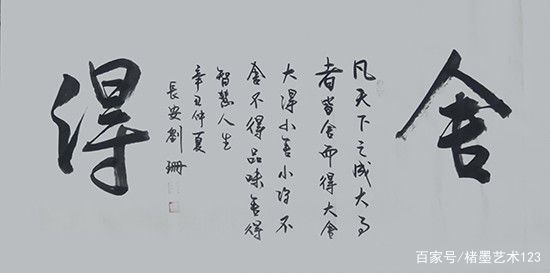 舍
凡天下之成大事
者皆舍而得大舍
大得小舍小得不
舍不得品味舍得
智慧人生
辛丑仲夏
長安劉珊
得
百家号/楮墨艺术123